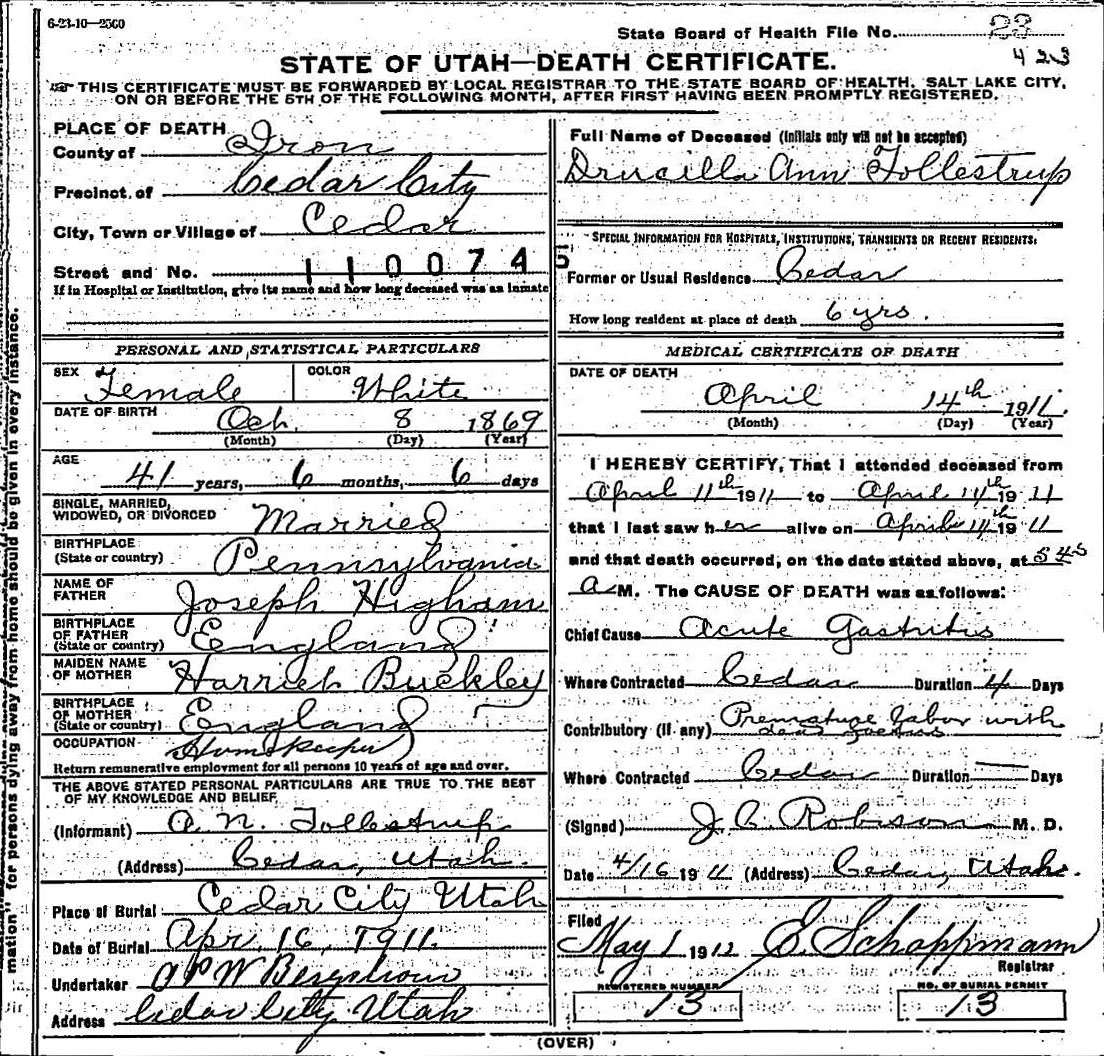 6-23-10—2500
State Board of Health File No. 23
423
STATE OF UTAH—DEATH CERTIFICATE.
THIS CERTIFICATE MUST BE FORWARDED BY LOCAL REGISTRAR TO THE STATE BOARD OF HEALTH, SALT LAKE CITY,
ON OR BEFORE THE 5TH OF THE FOLLOWING MONTH, AFTER FIRST HAVING BEEN PROMPTLY REGISTERED.
PLACE OF DEATH
County of Iron
Precinct of Cedar City
City, Town or Village of Cedar
Street and No. 1100745
If in Hospital or Institution, give its name and how long deceased was an inmate
Full Name of Deceased (Initials only will not be accepted)
Drucilla Ann Tollestrup
SPECIAL INFORMATION FOR HOSPITALS, INSTITUTIONS, TRANSIENTS OR RECENT RESIDENTS:
Former or Usual Residence Cedar
How long resident at place of death 6 yrs.
PERSONAL AND STATISTICAL PARTICULARS
SEX Female COLOR White
DATE OF BIRTH Oct. 8 1869
(Month) (Day) (Year)
AGE 41 years, 6 months, 6 days
SINGLE, MARRIED,
WIDOWED, OR DIVORCED Married
BIRTHPLACE
(State or country) Pennsylvania
NAME OF
FATHER Joseph Higham
BIRTHPLACE
OF FATHER
(State or country) England
MAIDEN NAME
OF MOTHER Harriet Buckley
BIRTHPLACE
OF MOTHER
(State or country) England
OCCUPATION Homekeeper
Return remunerative employment for all persons 10 years of age and over.
THE ABOVE STATED PERSONAL PARTICULARS ARE TRUE TO THE BEST
OF MY KNOWLEDGE AND BELIEF
(Informant) A. N. Tollestrup
(Address) Cedar, Utah.
Place of Burial Cedar City Utah
Date of Burial Apr. 16, 1911.
Undertaker A P W Bergstrom
Address Cedar City Utah
MEDICAL CERTIFICATE OF DEATH
DATE OF DEATH
April 14th 1911.
(Month) (Day) (Year)
I HEREBY CERTIFY, That I attended deceased from
April 11th 1911 to April 14th 1911
that I last saw her alive on April 14th 1911
and that death occurred, on the date stated above, at 545
A M. The CAUSE OF DEATH was as follows:
Chief Cause Acute Gastritis
Where Contracted Cedar Duration 4 Days
Contributory (if any) Premature labor with
dead foetus
Where Contracted Cedar Duration Days
(Signed) J. C. Robison M. D.
Date 4/16 1911 (Address) Cedar, Utah.
Filed
May 1 1912 E. Schoppmann
Registrar
REGISTERED NUMBER
13
NO. OF BURIAL PERMIT
13
(OVER)
mation" for persons dying away from home should be given in every instance.